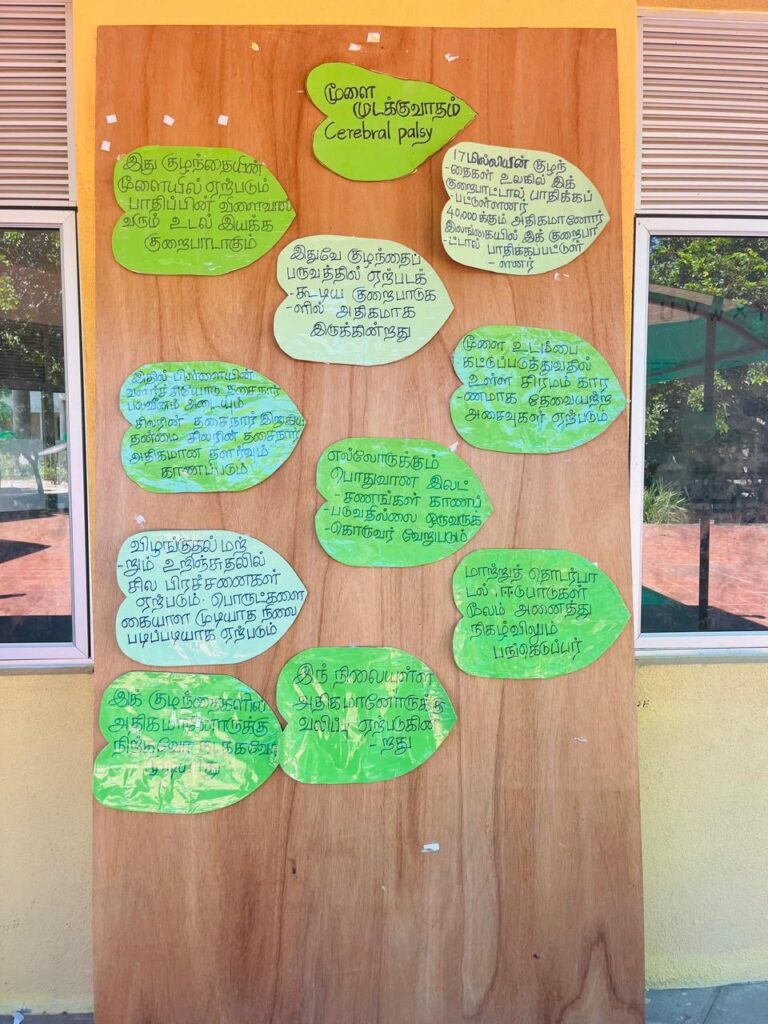 மூளை
முடக்குவாதம்
Cerebral palsy
இது குழந்தையின்
மூளையில் ஏற்படும்
பாதிப்பின் விளைவால்
வரும் உடல் இயக்க
குறைபாடாகும்
17மில்லியன் குழந்
-தைகள் உலகில் இக்
குறைபாட்டால் பாதிக்கப்
-பட்டுள்ளனர்
40,000க்கும் அதிகமானோர்
இலங்கையில் இக் குறைபா
-ட்டால் பாதிக்கப்பட்டுள்
-ளனர்
இதுவே குழந்தைப்
பருவத்தில் ஏற்படக்
-கூடிய குறைபாடுக
-ளில் அதிகமாக
இருக்கின்றது
மூளை உடம்பை
கட்டுப்படுத்துவதில்
உள்ள சிரமம் கார
-ணமாக தேவையற்ற
அசைவுகள் ஏற்படும்
இதில் பிள்ளையின்
தசைநார்
பலவீனம் அடையும்
-சிலரின் தசைநார் இறுகிய
தன்மை சிலரின் தசைநார்
அதிகமான தளர்வும்
காணப்படும்
எல்லோருக்கும்
பொதுவான இலட்
-சணங்கள் காணப்
-படுவதில்லை ஒருவருக்
-கொருவர் வேறுபடும்
விழுங்குதல் மற்
-றும் உறிஞ்சுதலில்
சில பிரச்சனைகள்
ஏற்படும். பொருட்களை
கையாள முடியாத நிலை
படிப்படியாக ஏற்படும்
மாற்றுத் தொடர்பா
டல் ஈடுபாடுகள்
மூலம் அனைத்து
நிகழ்விலும்
பங்கெடுப்பர்
இக் குழந்தைகளில்
அதிகமானோருக்கு
நிற்கவோ நடக்கவோ
இந் நிலையுள்ள
அதிகமானோருக்கு
வலிப்பு ஏற்படுகின்
-றது